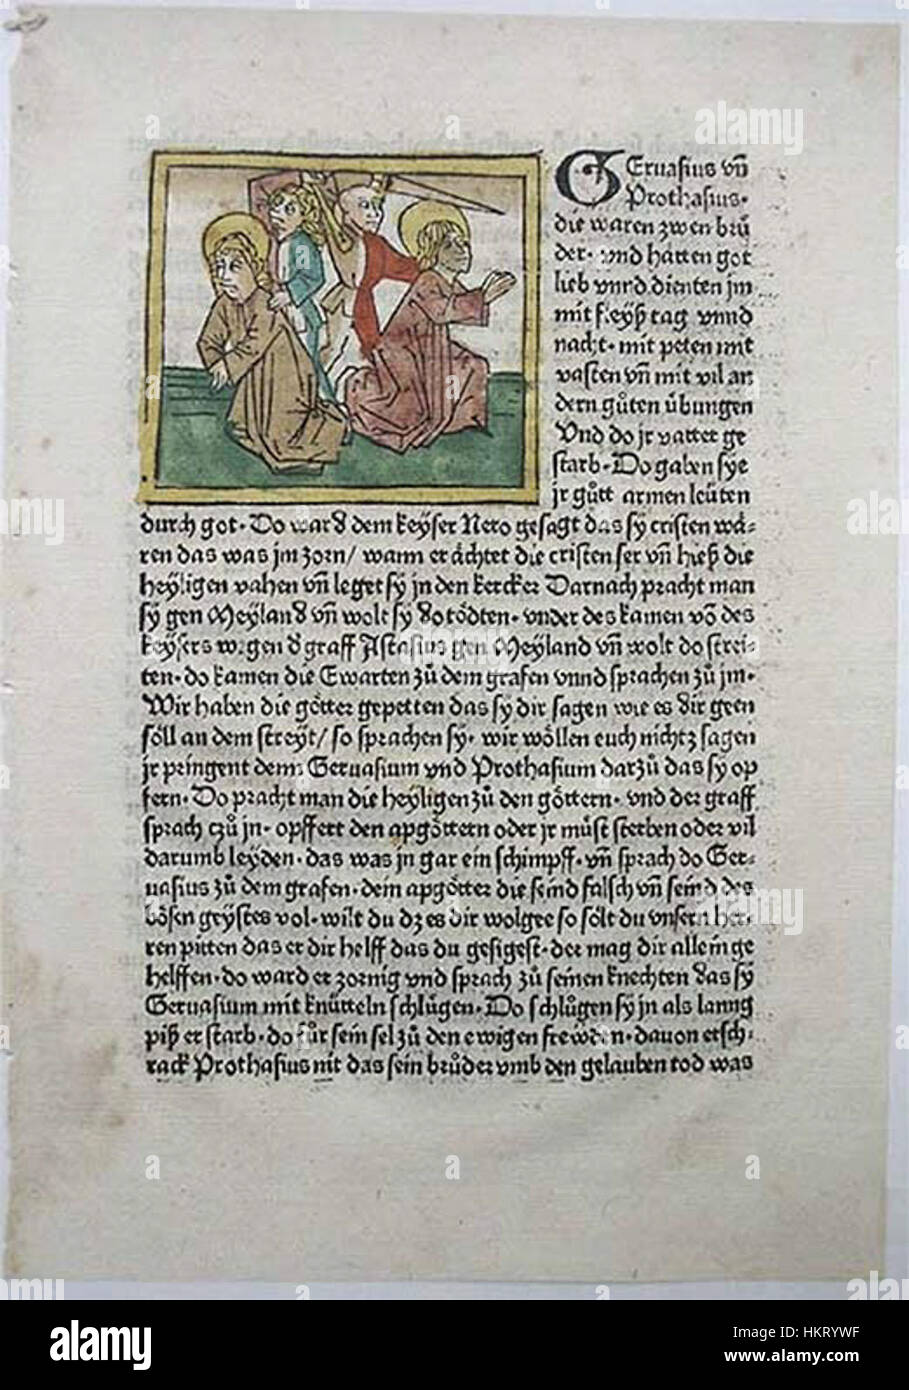 GErvasius vñ
Prothasius·
die waren zwen brů
der· vnd hatten got
lieb vnnd dienten jm
mit fleyß tag vnnd
nacht· mit peten mit
vasten vñ mit vil an
dern gůten übungen
Vnd do jr vatter ge
starb· Do gaben sye
jr gůtt armen leüten
durch got· Do ward dem keyser Nero gesagt das sy cristen wå-
ren das was jm zorn/ wann er åchtet die cristen ser vñ hieß die
heyligen vahen vñ leget sy jn den kercker Darnach pracht man
sy gen Meyland vñ wolt sy do tödten· vnder des kamen vö des
keysers wegen d graff Astasius gen Meyland vñ wolt do strei-
ten· do kamen die Ewarten zů dem grafen vnnd sprachen zů jm·
Wir haben die götter gepetten das sy dir sagen wie es dir geen
söll an dem streyt/ so sprachen sy· wir wöllen euch nichtz sagen
jr pringent denn Gervasium vnd Prothasium darzů das sy op
fern· Do pracht man die heyligen zů den göttern· vnd der graff
sprach czů jn· opffert den apgöttern oder jr můst sterben oder vil
darumb leyden· das was jn gar ein schimpff· vñ sprach do Ger-
vasius zů dem grafen· dem apgötter die seind falsch vñ seind des
bösen geystes vol· wilt du dz es dir wolgee so sölt du vnsern her-
ren pitten das er dir helff das du gesigest· der mag dir allein ge
helffen· do ward er zornig vnd sprach zů seinen knechten das sy
Gervasium mit knütteln schlügen· Do schlůgen sy jn als lanng
piß er starb· do fůr sein sel zů den ewigen frewden· davon ersch-
rack Prothasius nit das sein brůder vmb den gelauben tod was
alamy
Image ID: HKRYWF
www.alamy.com